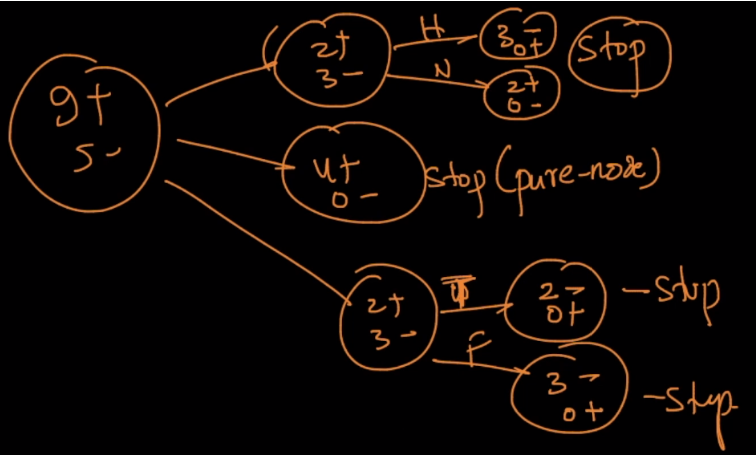 9+
5-
2+
3-
H
3-
0+
Stop
N
2+
0-
4+
0-
stop (pure-node)
2+
3-
T
2-
0+
-stop
F
3-
0+
-stop